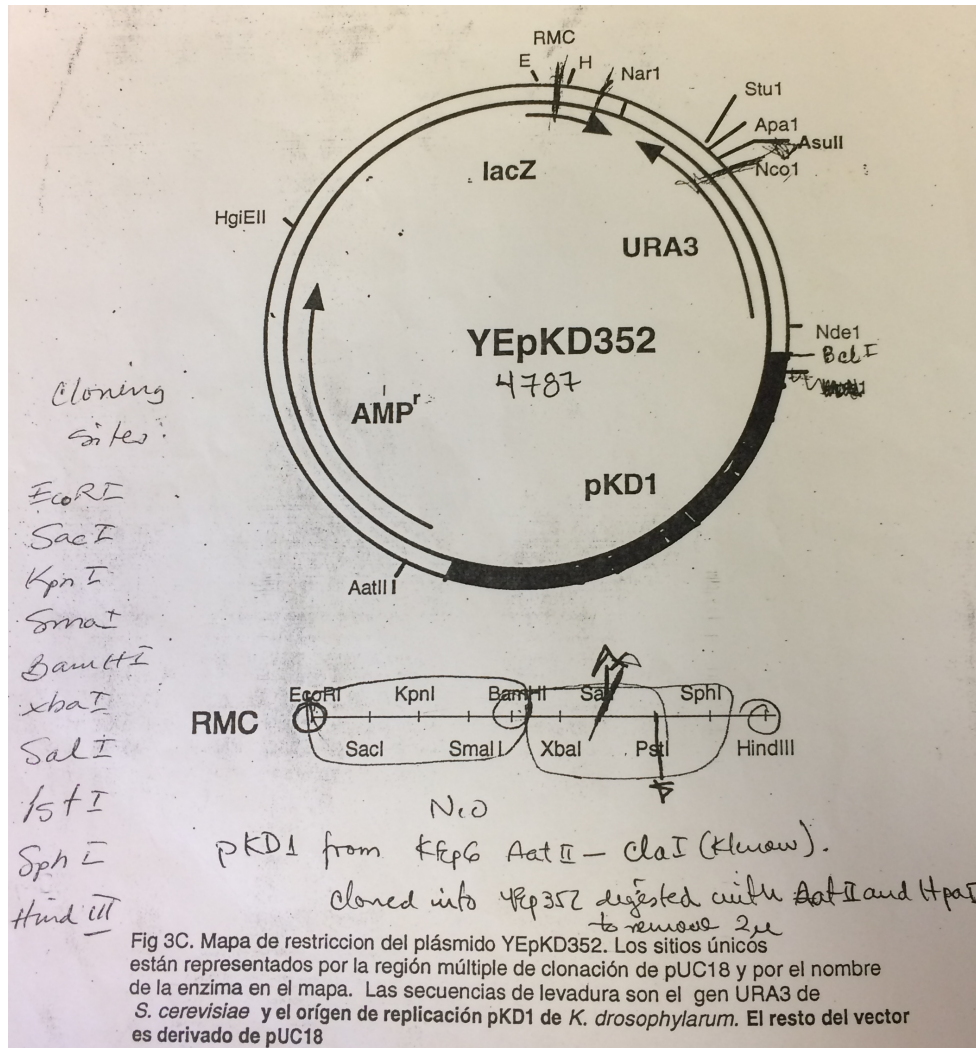 RMC
E H Nar1
Stu1
Apa1
AsuII
Nco1
lacZ
HgiEII
URA3
YEpKD352
4787
Nde1
Bcl I
AMPr
pKD1
AatIII
Cloning
sites:
EcoRI
SacI
KpnI
SmaI
BamHI
XbaI
SalI
PstI
SphI
Hind III
EcoRI KpnI BamHI SalI SphI
RMC
SacI SmaII XbaI PstI HindIII
pKD1 from KEp6 AatII - ClaI (Klenow).
cloned into YEp352 digested with AatII and HpaI
to remove 2μ
Fig 3C. Mapa de restriccion del plásmido YEpKD352. Los sitios únicos
están representados por la región múltiple de clonación de pUC18 y por el nombre
de la enzima en el mapa. Las secuencias de levadura son el gen URA3 de
S. cerevisiae y el orígen de replicación pKD1 de K. drosophylarum. El resto del vector
es derivado de pUC18